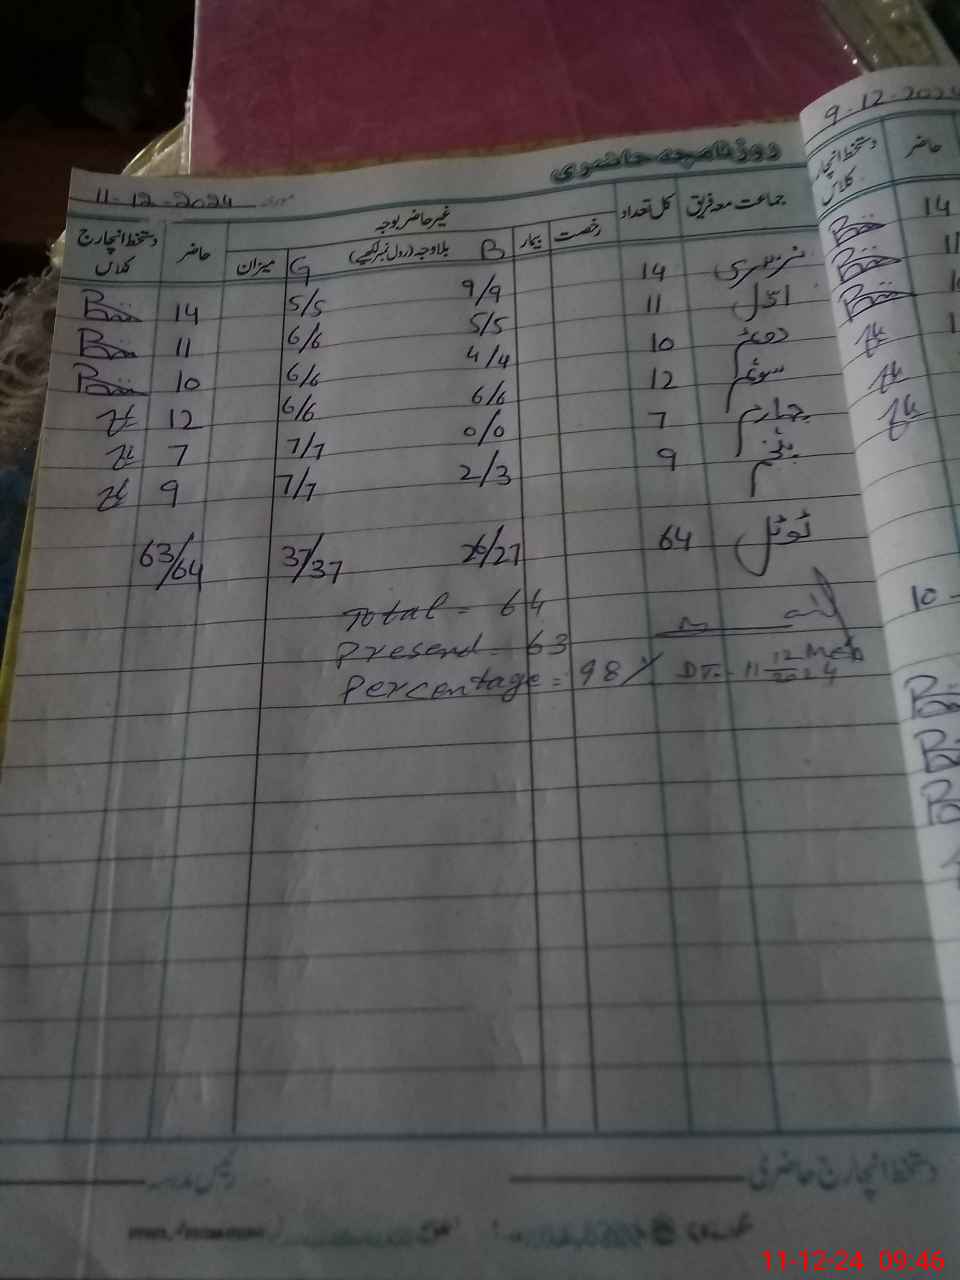 روزنامچہ حاضری
11-12-2024
جماعت معہ فریق کل تعداد رخصت بیمار غیر حاضر بوجہ حاضر دستخط انچارج کلاس
B بلاوجہ (رول نمبر لکھیے) G میزان
نرسری 14 9/9 5/5 14
اوّل 11 5/5 6/6 11
دوئم 10 4/4 6/6 10
سوئم 12 6/6 6/6 12
چہارم 7 0/0 7/7 7
پنجم 9 2/3 7/7 9
ٹوٹل 64 26/27 37/37 63/64
Total = 64
Presend = 63
Percentage = 98 %
DT. 11 12 2024
دستخط انچارج حاضری رئیس مدرسہ
9-12-2024
حاضر دستخط انچارج کلاس
14
10
11-12-24 09:46